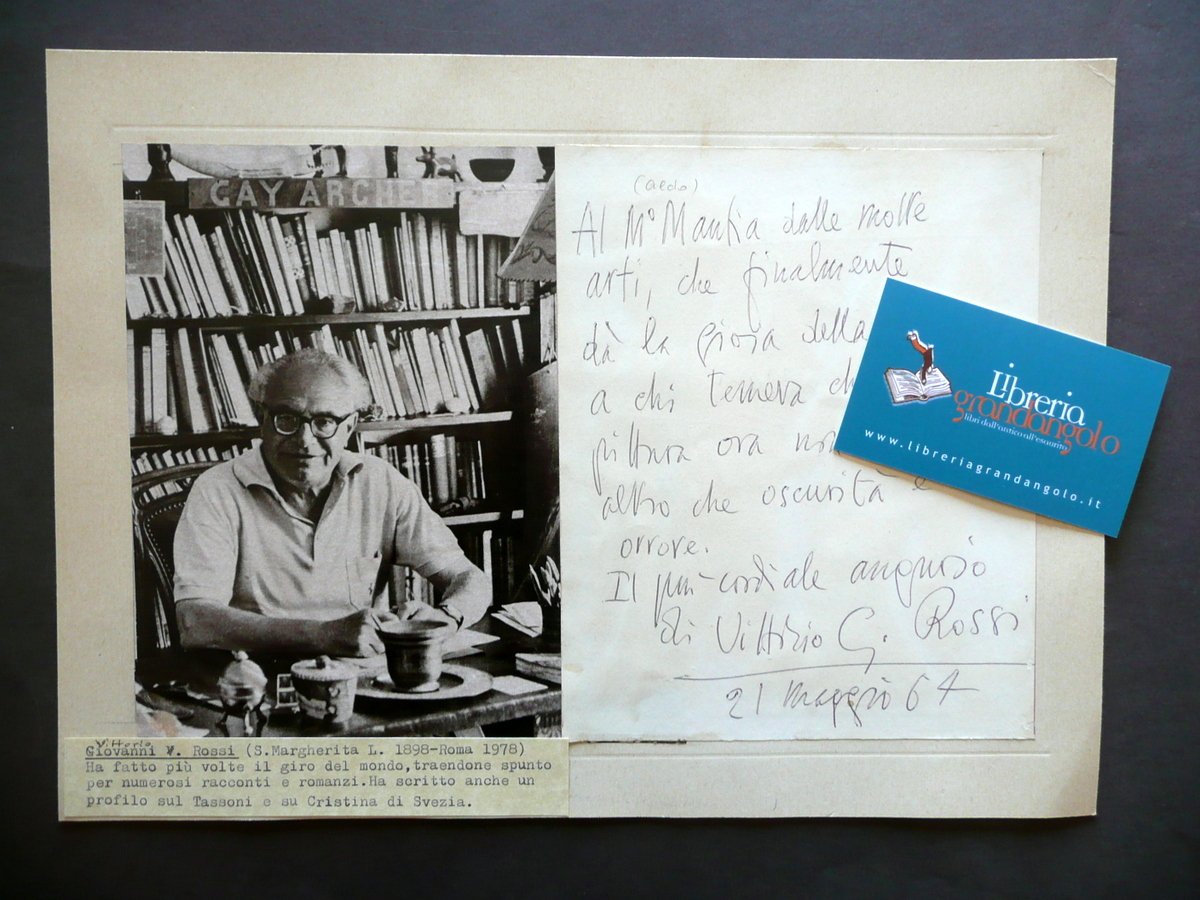 GAY ARCHE
(aedo)
Al M° Mantia dalle molte
arti, che finalmente
dà la gioia della
a chi temeva ch
pittura ora non
altro che oscurità e
orrore.
Il più cordiale augurio
di Vittorio G. Rossi
21 maggio 64
Libreria
grandangolo
libri dall'antico all'esaurito
www.libreriagrandangolo.it
Vittorio
Giovanni V. Rossi (S.Margherita L. 1898-Roma 1978)
Ha fatto più volte il giro del mondo,traendone spunto
per numerosi racconti e romanzi.Ha scritto anche un
profilo sul Tassoni e su Cristina di Svezia.